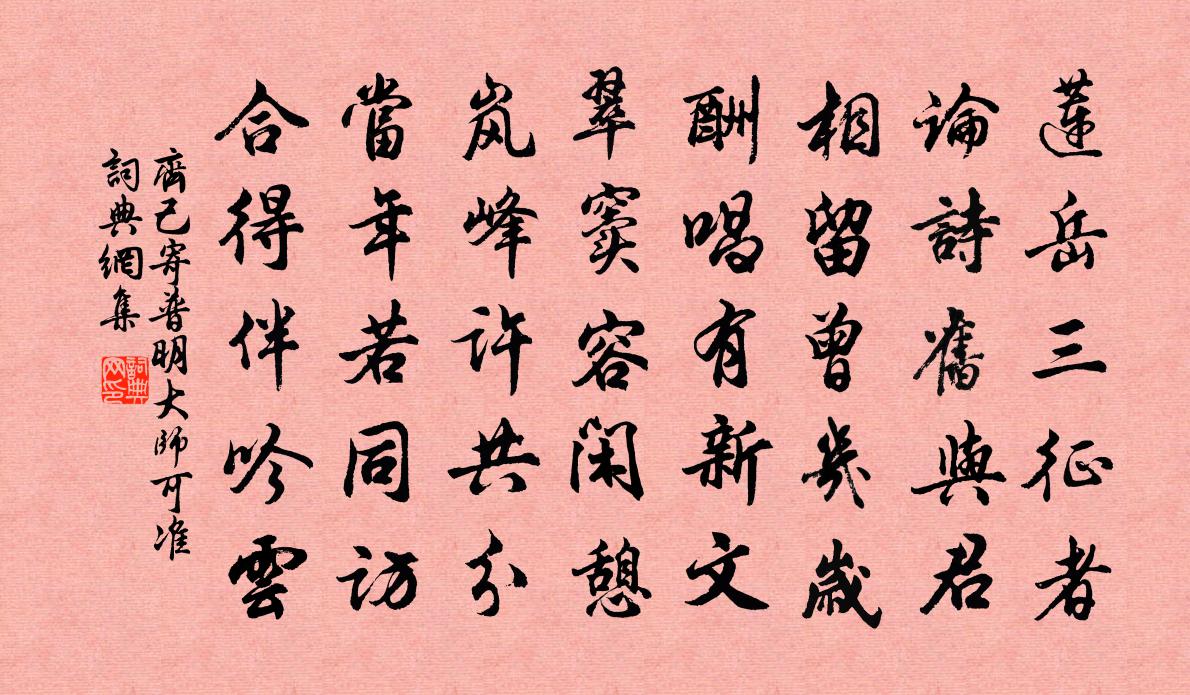 蓮岳三征者
論詩舊與君
相留曾幾歲
酬唱有新文
翠竇容閑憩
岚峰許共分
當年若同訪
合得伴吟雲
齊己寄普明大師可准
詞典網集
詞典网印